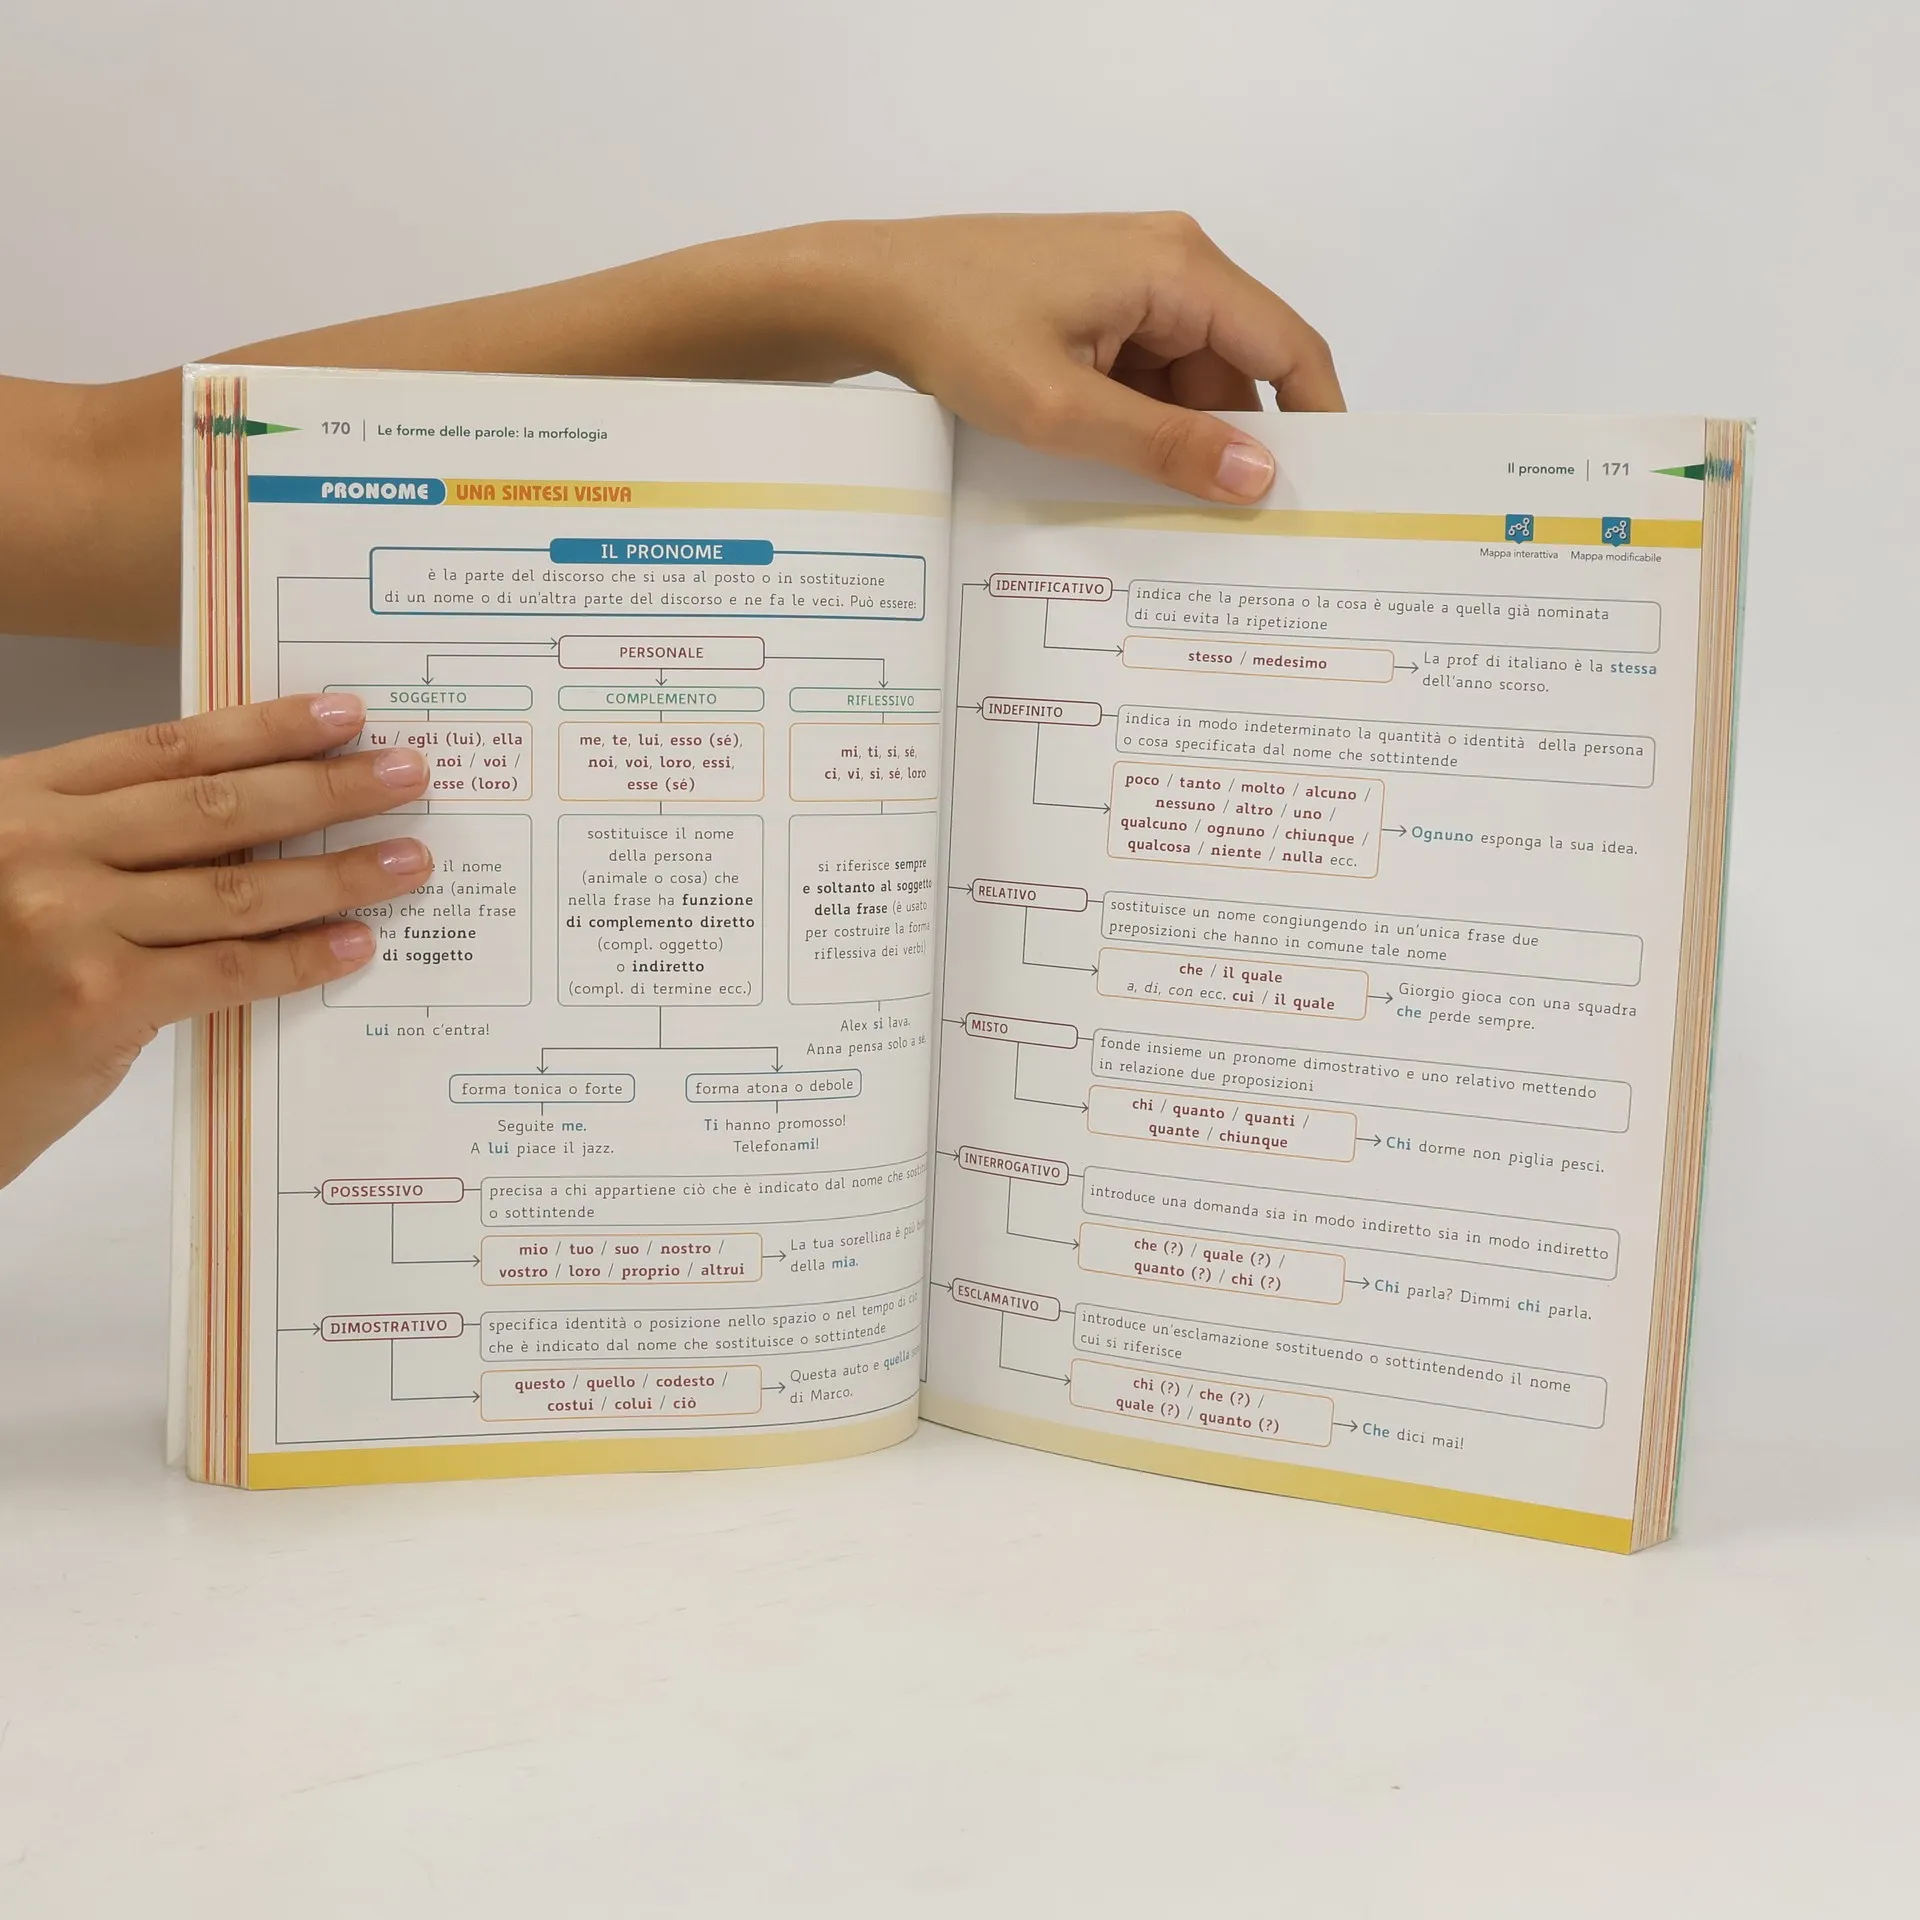 170 | Le forme delle parole: la morfologia
PRONOME UNA SINTESI VISIVA
IL PRONOME
è la parte del discorso che si usa al posto o in sostituzione
di un nome o di un'altra parte del discorso e ne fa le veci. Può essere:
PERSONALE
SOGGETTO
/ tu / egli (lui), ella
noi / voi /
esse (loro)
il nome
(animale
cosa) che nella frase
ha funzione
di soggetto
Lui non c'entra!
COMPLEMENTO
me, te, lui, esso (sé),
noi, voi, loro, essi,
esse (sé)
sostituisce il nome
della persona
(animale o cosa) che
nella frase ha funzione
di complemento diretto
(compl. oggetto)
o indiretto
(compl. di termine ecc.)
RIFLESSIVO
mi, ti, si, sé,
ci, vi, si, sé, loro
si riferisce sempre
e soltanto al soggetto
della frase (è usato
per costruire la forma
riflessiva dei verbi)
Alex si lava.
Anna pensa solo a sé.
forma tonica o forte
Seguite me.
A lui piace il jazz.
forma atona o debole
Ti hanno promosso!
Telefonami!
POSSESSIVO
precisa a chi appartiene ciò che è indicato dal nome che
o sottintende
mio / tuo / suo / nostro /
vostro / loro / proprio / altrui
La tua sorellina è più
della mia.
DIMOSTRATIVO
specifica identità o posizione nello spazio o nel tempo di ciò
che è indicato dal nome che sostituisce o sottintende
questo / quello / codesto /
costui / colui / ciò
Questa auto e quella
di Marco.
Il pronome | 171
Mappa interattiva Mappa modificabile
IDENTIFICATIVO
indica che la persona o la cosa è uguale a quella già nominata
di cui evita la ripetizione
stesso / medesimo
La prof di italiano è la stessa
dell'anno scorso.
INDEFINITO
indica in modo indeterminato la quantità o identità della persona
o cosa specificata dal nome che sottintende
poco / tanto / molto / alcuno /
nessuno / altro / uno /
qualcuno / ognuno / chiunque /
qualcosa / niente / nulla ecc.
Ognuno esponga la sua idea.
RELATIVO
sostituisce un nome congiungendo in un'unica frase due
preposizioni che hanno in comune tale nome
che / il quale
a, di, con ecc. cui / il quale
Giorgio gioca con una squadra
che perde sempre.
MISTO
fonde insieme un pronome dimostrativo e uno relativo mettendo
in relazione due proposizioni
chi / quanto / quanti /
quante / chiunque
Chi dorme non piglia pesci.
INTERROGATIVO
introduce una domanda sia in modo indiretto sia in modo indiretto
che (?) / quale (?) /
quanto (?) / chi (?)
Chi parla? Dimmi chi parla.
ESCLAMATIVO
introduce un'esclamazione sostituendo o sottintendendo il nome
cui si riferisce
chi (?) / che (?) /
quale (?) / quanto (?)
Che dici mai!